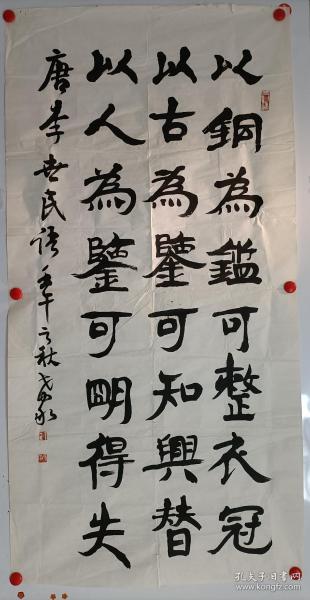 以銅為鑑可整衣冠
以古為鑒可知興替
以人為鑒可明得失
唐李世民語壬午之秋
孔夫子旧书网